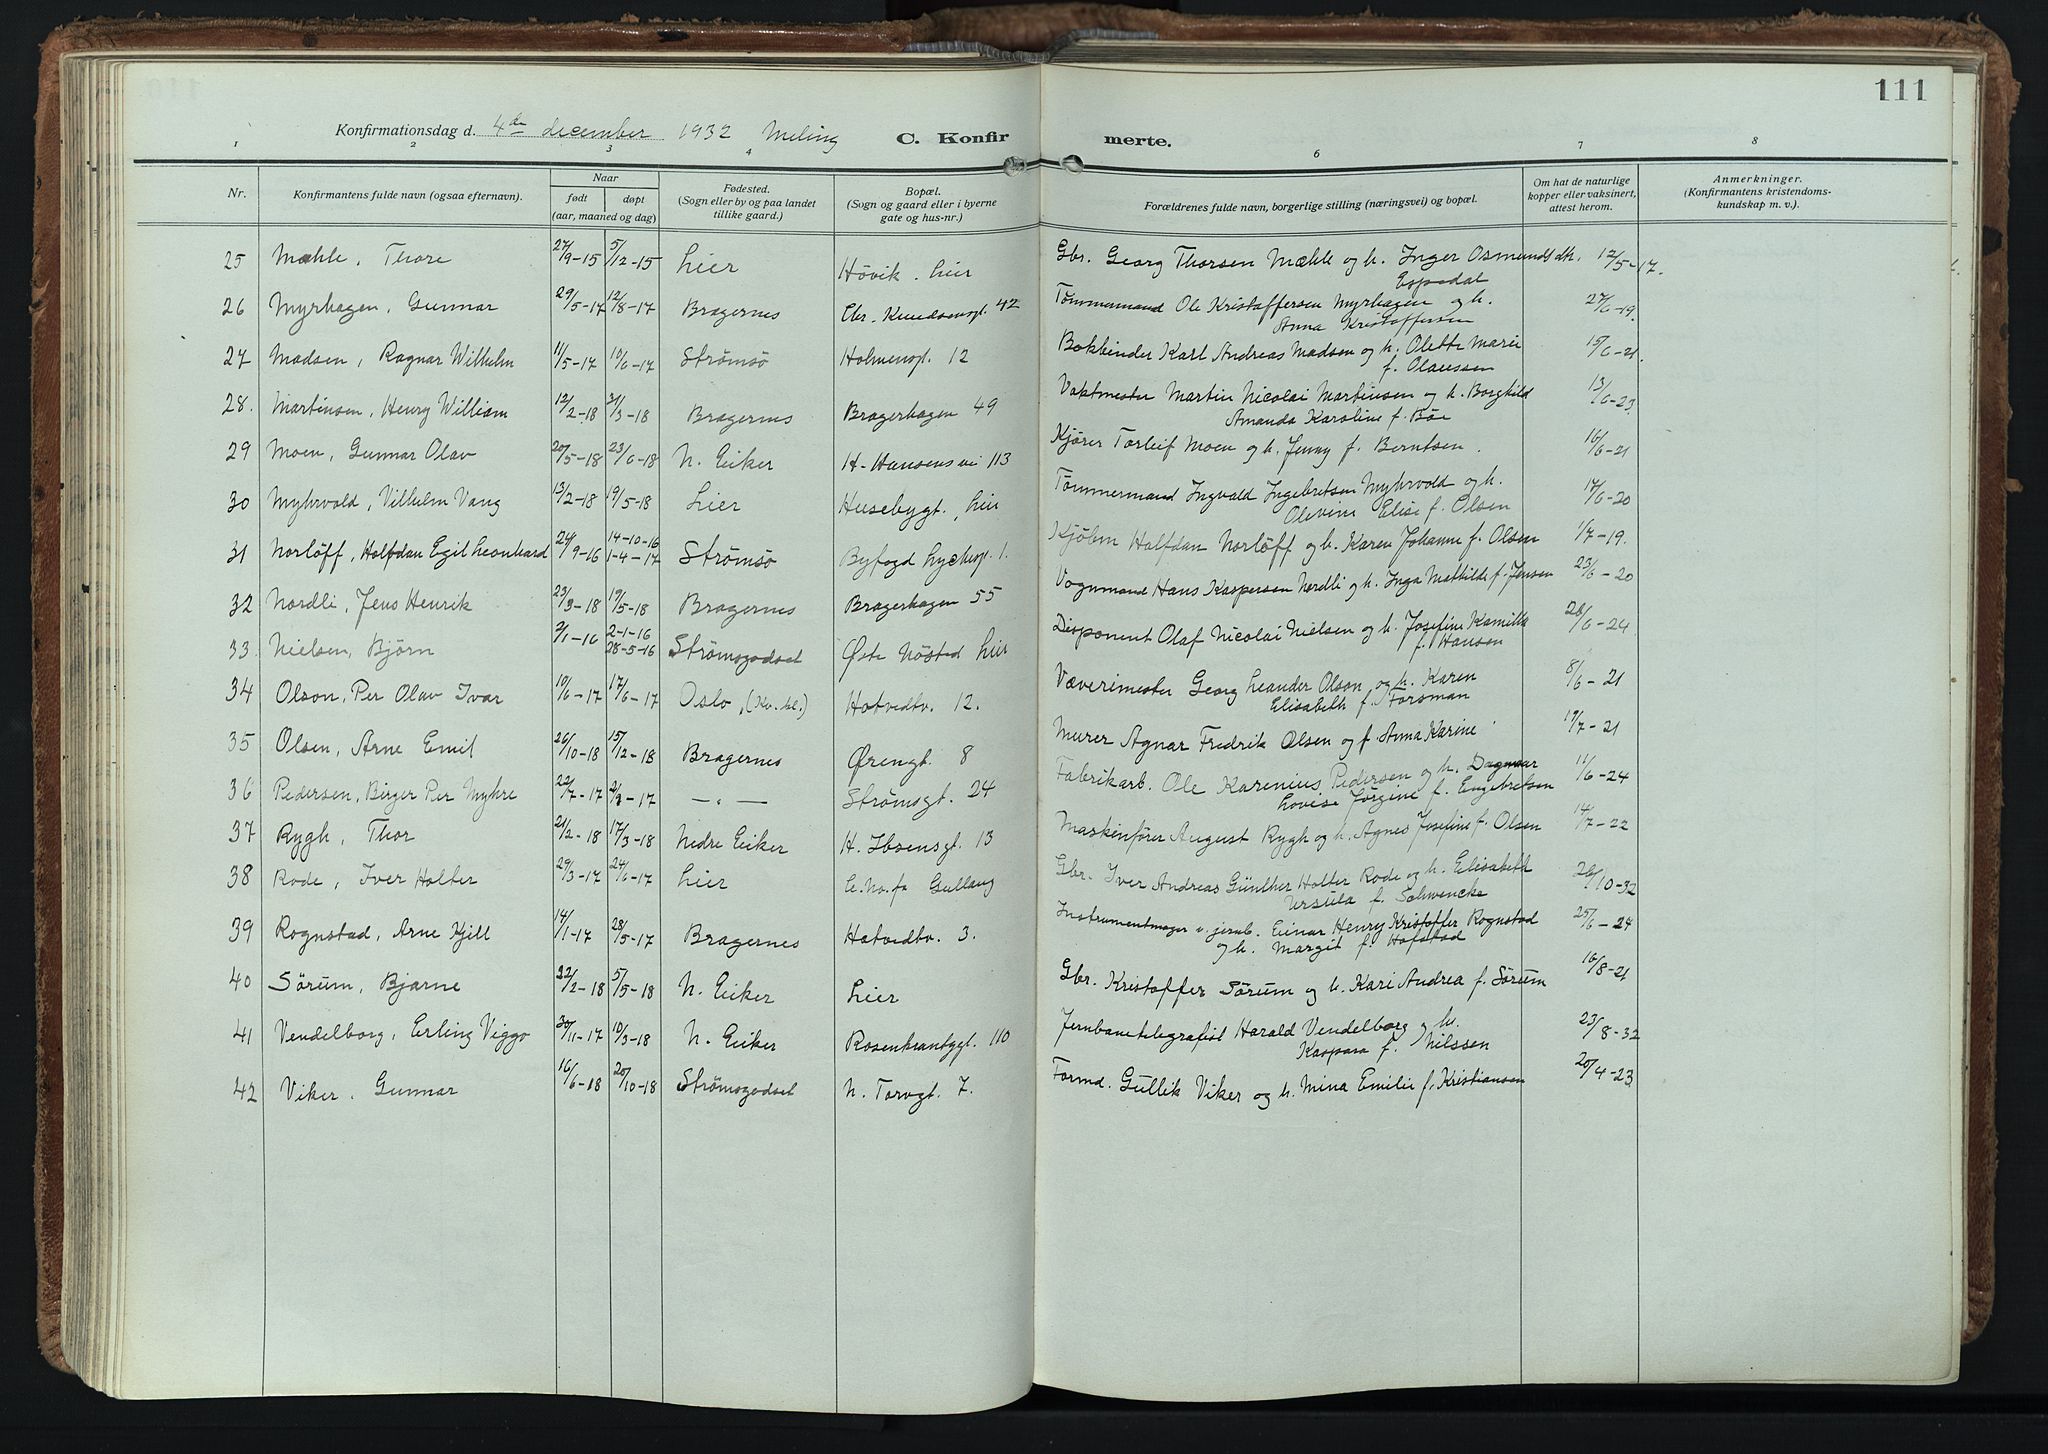 111
Konfirmationsdag d. 4de december 1932 Meling C. Konfirmerte.
1 2 3 4 6 7 8
Nr. Konfirmantens fulde navn (ogsaa efternavn). Naar født døpt (aar, maaned og dag) Fødested. (Sogn eller by og paa landet tillike gaard.) Bopæl. (Sogn og gaard eller i byerne gate og hus-nr.) Forældrenes fulde navn, borgerlige stilling (næringsvei) og bopæl. Om hat de naturlige kopper eller vaksinert, attest herom. Anmerkninger. (Konfirmantens kristendoms-kundskap m. v.).
25 Mæhle, Thore 27/9-15 5/12-15 Lier Høvik. Lier Gbr. Georg Thorsen Mæhle og h. Inger Osmundsdtr. Espedal 12/5-17.
26 Myrhagen, Gunnar 29/5-17 12/8-17 Bragernes Chr. Knudsensgt. 42 Tømmermand Ole Kristoffersen Myrhagen og h. Anna Kristoffersen 27/6-19.
27 Madsen, Ragnar Wilhelm 11/5-17 10/6-17 Strømsø Holmensgt. 12 Bokbinder Karl Andreas Madsen og h. Olette Marie f. Olaussen 15/6-21.
28. Martinsen, Henry William 12/2-18 31/3-18 Bragernes Bragerhagen 49 Vaktmester Martin Nicolai Martinsen og h. Borghild Amanda Karoline f. Bøe 13/6-23
29 Moen, Gunnar Olav 20/5-18 23/6-18 N. Eiker H. Hansensvei 113 Kjører Torleif Moen og h. Jenny f. Berntsen. 16/6-21
30 Myhrvold, Vilhelm Vang 13/2-18 19/5-18 Lier Husebygt., Lier Tømmermand Ingvald Ingebretsen Myhrvold og h. Olevine Elise f. Olsen 17/6-20
31 Norløff, Halfdan Egil Leonhard 24/9-16 14-10-16 1-4-17 Strømsø Byfogd Lychesgt. 1. Kjøbm Halfdan Norløff og h. Karen Johanne f. Olsen 1/7-19.
32 Nordli, Jens Henrik 23/3-18 19/5-18 Bragernes Bragerhagen 55 Vognmand Hans Kaspersen Nordli og h. Inga Mathilde f. Jensen 23/6-20
33. Nielsen, Bjørn 2/1-16 2-1-16 28-5-16 Strømsgodset Østre Nøsted Lier Disponent Olaf Nicolai Nielsen og h. Josefine Kamilla f. Hansen 26/6-24
34 Olson, Per Olav Ivar 10/6-17 17/6-17 Oslo, (Kv.kl.) Hotvedtv. 12. Væverimester Georg Leander Olson og h. Karen Elisabeth f. Forsman 8/6-21
35 Olsen, Arne Emil 26/10-18 15/12-18 Bragernes Ørengt. 8 Murer Agnar Fredrik Olsen og f. Anna Karine 19/7-21
36 Pedersen, Birger Per Myhre 22/7-17 2/3-17 —„— Strømsgt. 24 Fabrikarb. Ole Karenius Pedersen og h. Dagmar Lovise Jørgine f. Engebretsen 11/6-24
37 Rygh, Thor 21/2-18 17/3-18 Nedre Eiker H. Ibsensgt. 13 Maskinfører August Rygh og h. Agnes Josefine f. Olsen 14/7-22
38 Rode, Iver Holter 29/3-17 24/6-17 Lier Gullaug Gbr. Iver Andreas Günther Holter Rode og h. Elisabeth Ursula f. Schwencke 26/10-32
39 Rognstad, Arne Kjell 14/1-17 28/5-17 Bragernes Hotvedtv. 3. Instrumentmager v. jernb. Einar Henry Kristoffer Rognstad og h. Margit f. Hofstad 25/6-24
40 Sørum, Bjarne 22/2-18 5/5-18 N. Eiker Lier Gbr. Kristoffer Sørum og h. Kari Andrea f. Sørum 16/8-21
41 Vendelborg, Erling Viggo 30/11-17 10/3-18 N. Eiker Rosenkrantzgt. 110 Jernbanetelegrafist Harald Vendelborg og h. Kaspara f. Nilssen 23/8-32
42 Viker, Gunnar 16/6-18 20/10-18 Strømsgodset N. Torvgt. 7. Formd. Gullik Viker og h. Mina Emilie f. Kristiansen 20/4-23